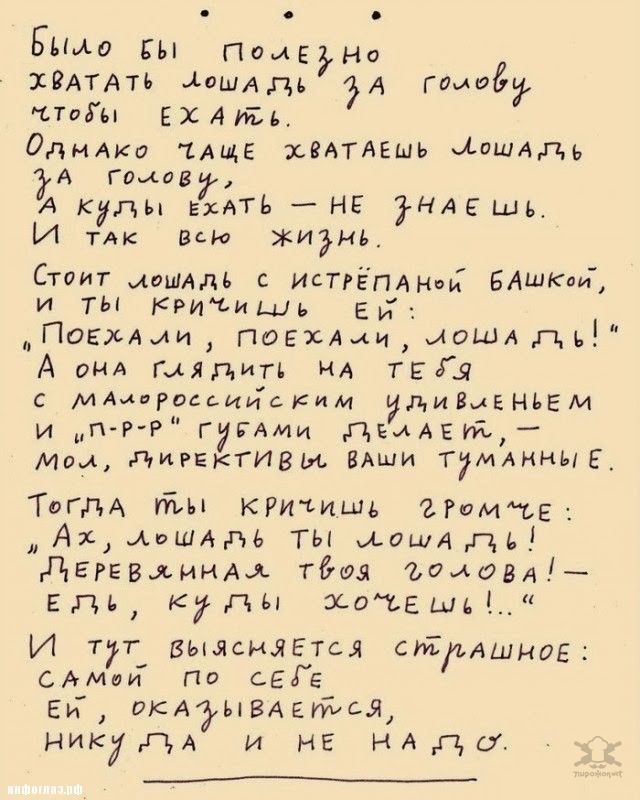 • • •
Было бы полезно
хватать лошадь за голову
чтобы ехать.
Однако чаще хватаешь лошадь
за голову,
а куды ехать — не знаешь.
И так всю жизнь.
Стоит лошадь с истрёпаной башкой,
и ты кричишь ей:
„Поехали, поехали, лошадь!“
А она глядить на тебя
с малороссийским удивленьем
и „п-р-р“ губами делает, —
мол, директивы ваши туманные.
Тогда ты кричишь громче:
„Ах, лошадь ты лошадь!
Деревянная твоя голова! —
Едь, куды хочешь!..“
И тут выясняется страшное:
самой по себе
ей, оказывается,
никуда и не надо.
пирожок.нет
инфоглаз.рф